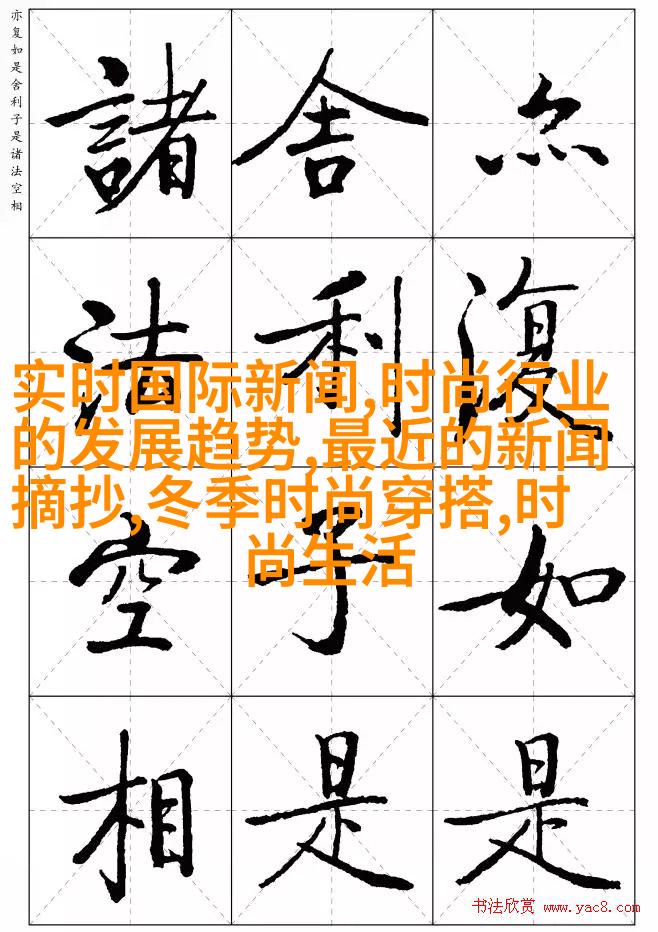 亦复如是舍利子是诸法空相
亦復如是
舍利子是
諸法空相
实时国际新闻,时尚行业
的发展趋势,最近的新闻
摘抄,冬季时尚穿搭,时
尚生活
书法欣赏 www.yac8.com